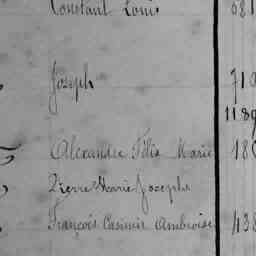 Constant Louis 681
Joseph 710
1189
Alexandre Félix Marie 180
Pierre Marie Joseph
François Casimir Ambroise 438